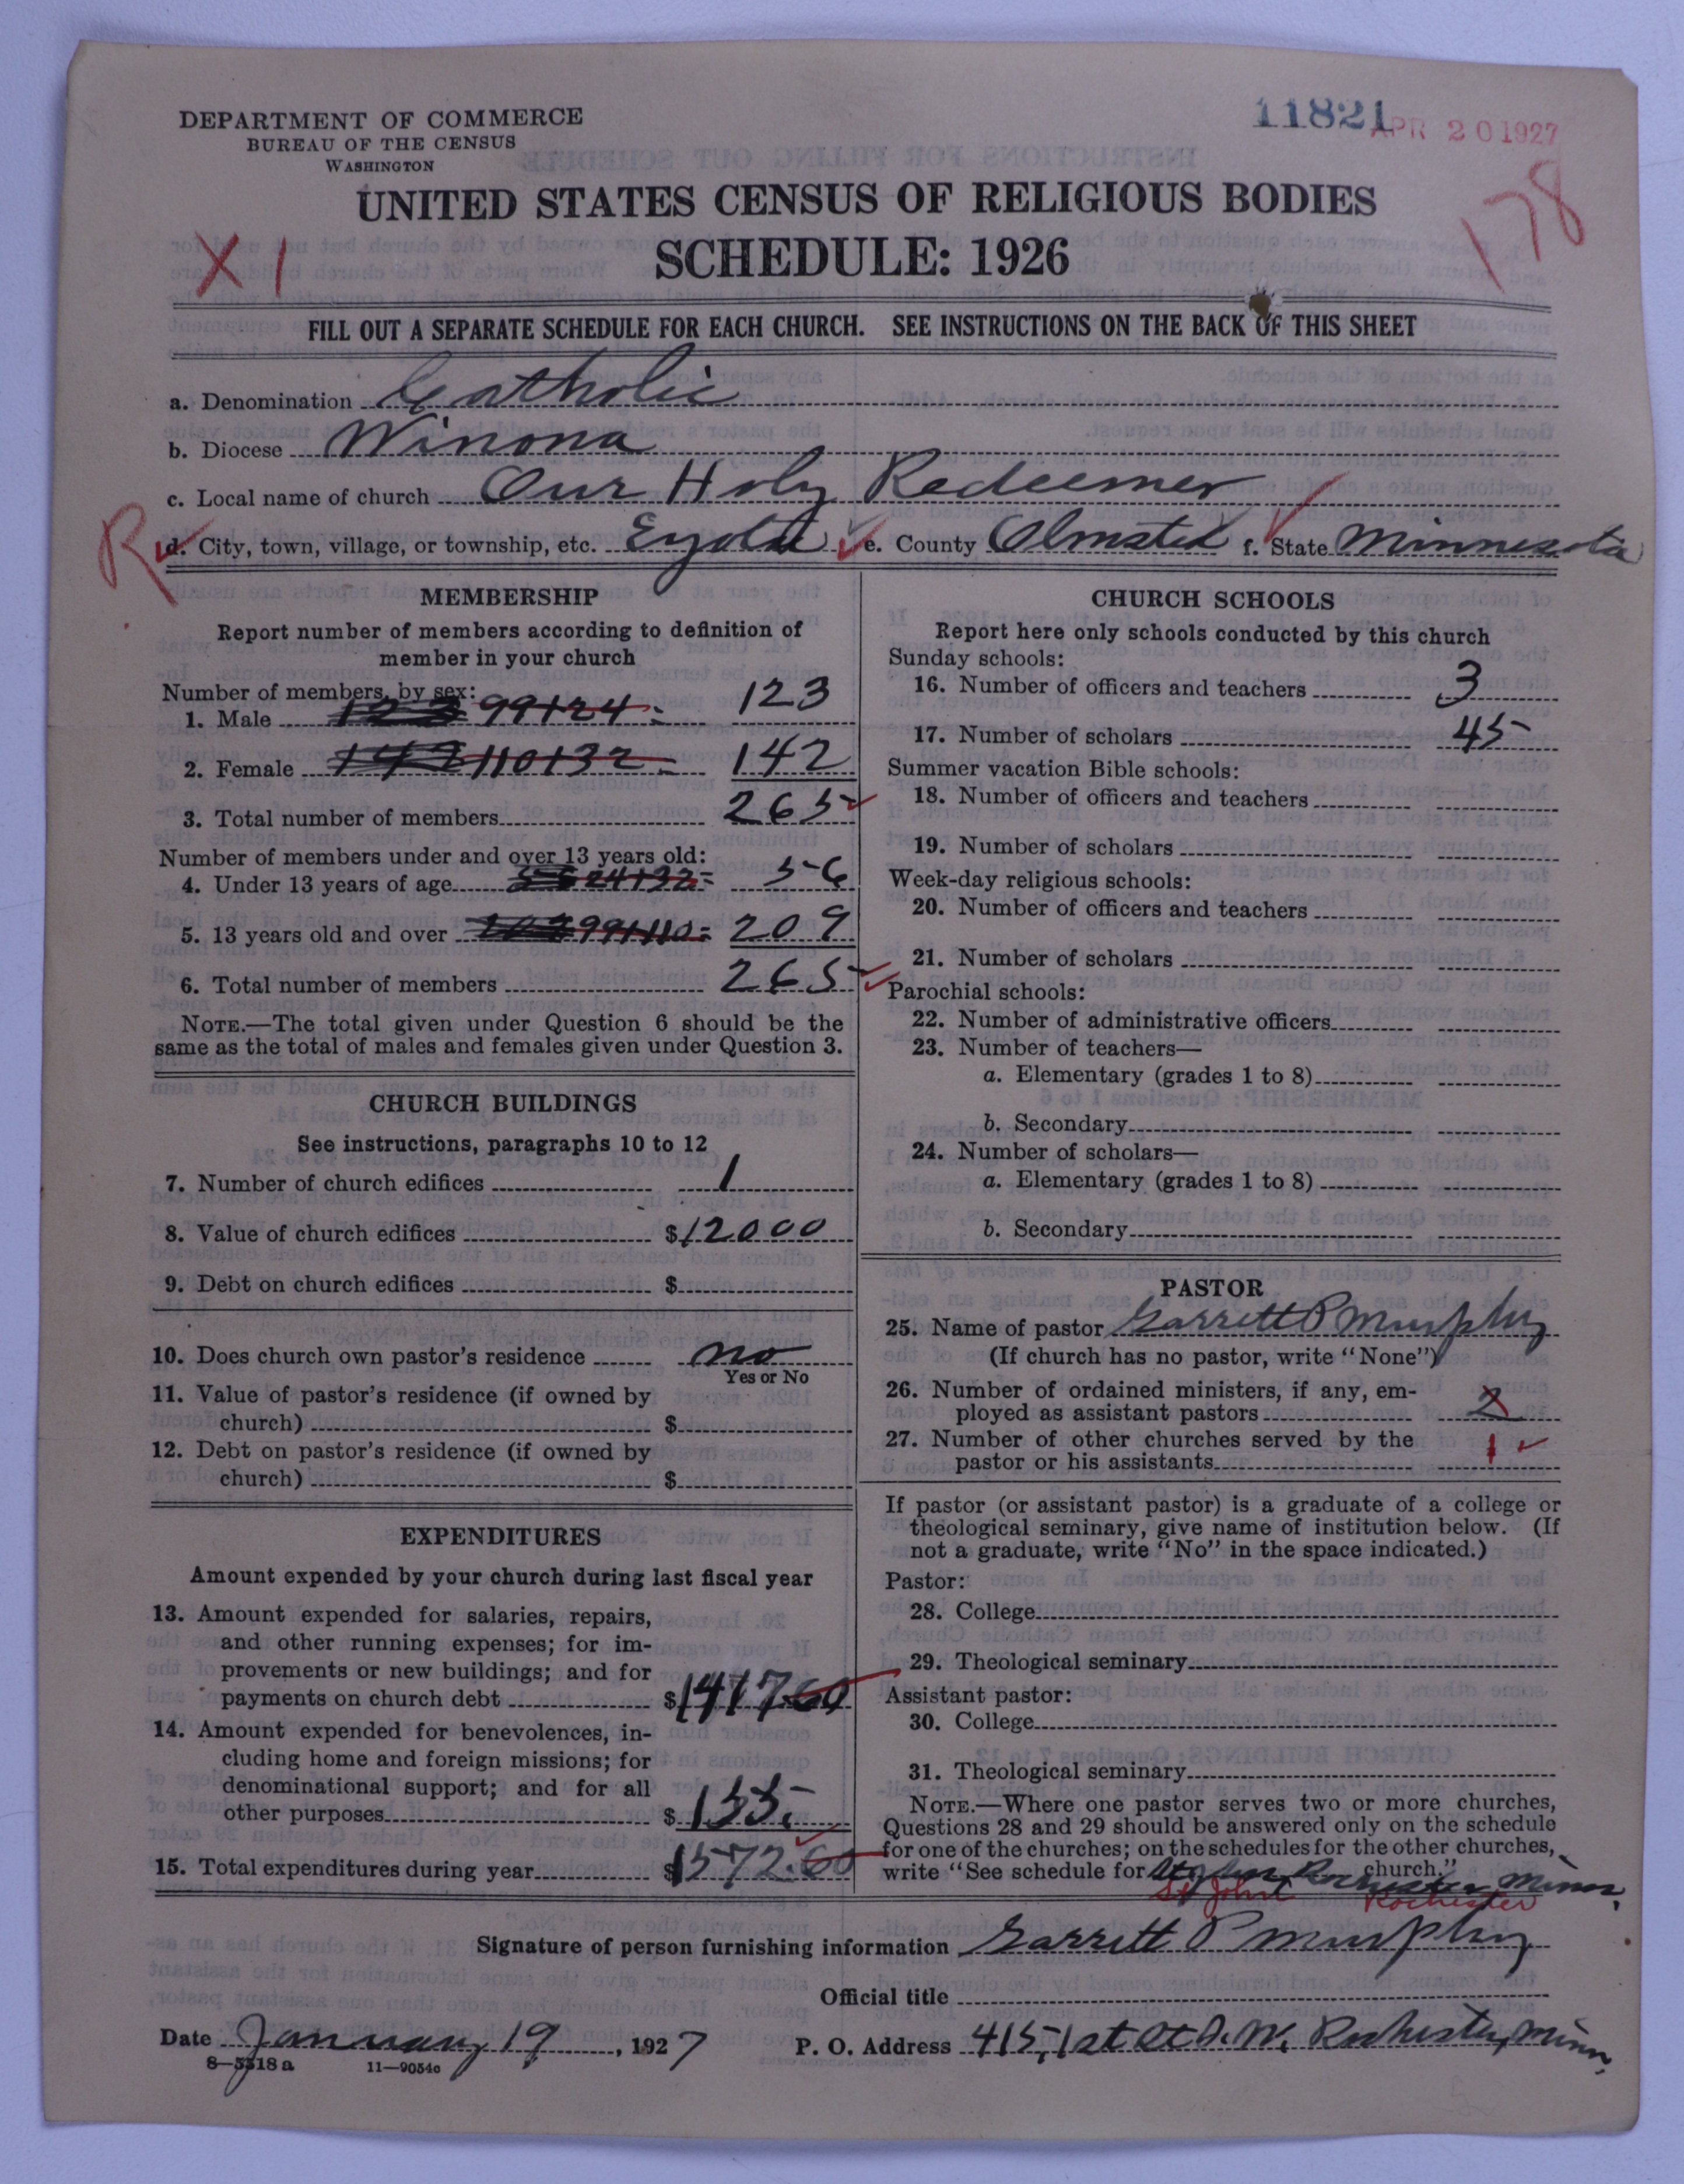 DEPARTMENT OF COMMERCE
BUREAU OF THE CENSUS
WASHINGTON
11821
APR 20 1927
178
UNITED STATES CENSUS OF RELIGIOUS BODIES
X 1
SCHEDULE: 1926
FILL OUT A SEPARATE SCHEDULE FOR EACH CHURCH. SEE INSTRUCTIONS ON THE BACK OF THIS SHEET
a. Denomination Catholic
b. Diocese Winona
c. Local name of church Our Holy Redeemer
R
d. City, town, village, or township, etc. Eyota e. County Olmsted f. State Minnesota
MEMBERSHIP
Report number of members according to definition of
member in your church
Number of members, by sex:
1. Male 123 99+24= 123
2. Female 142 110+32= 142
3. Total number of members 265
Number of members under and over 13 years old:
4. Under 13 years of age 24+32= 56
5. 13 years old and over 99+110= 209
6. Total number of members 265
NOTE.—The total given under Question 6 should be the
same as the total of males and females given under Question 3.
CHURCH BUILDINGS
See instructions, paragraphs 10 to 12
7. Number of church edifices 1
8. Value of church edifices $12000
9. Debt on church edifices $
10. Does church own pastor's residence no
Yes or No
11. Value of pastor's residence (if owned by
church) $
12. Debt on pastor's residence (if owned by
church) $
EXPENDITURES
Amount expended by your church during last fiscal year
13. Amount expended for salaries, repairs,
and other running expenses; for im-
provements or new buildings; and for
payments on church debt $1417.60
14. Amount expended for benevolences, in-
cluding home and foreign missions; for
denominational support; and for all
other purposes $155.
15. Total expenditures during year $1572.60
CHURCH SCHOOLS
Report here only schools conducted by this church
Sunday schools:
16. Number of officers and teachers 3
17. Number of scholars 45
Summer vacation Bible schools:
18. Number of officers and teachers
19. Number of scholars
Week-day religious schools:
20. Number of officers and teachers
21. Number of scholars
Parochial schools:
22. Number of administrative officers
23. Number of teachers—
a. Elementary (grades 1 to 8)
b. Secondary
24. Number of scholars—
a. Elementary (grades 1 to 8)
b. Secondary
PASTOR
25. Name of pastor Garrett P Murphy
(If church has no pastor, write "None")
26. Number of ordained ministers, if any, em-
ployed as assistant pastors 2
27. Number of other churches served by the
pastor or his assistants 1
If pastor (or assistant pastor) is a graduate of a college or
theological seminary, give name of institution below. (If
not a graduate, write "No" in the space indicated.)
Pastor:
28. College
29. Theological seminary
Assistant pastor:
30. College
31. Theological seminary
NOTE.—Where one pastor serves two or more churches,
Questions 28 and 29 should be answered only on the schedule
for one of the churches; on the schedules for the other churches,
write "See schedule for St John Rochester Minn. church."
St John Rochester
Signature of person furnishing information Garrett P Murphy
Official title
Date January 19, 1927 P. O. Address 415, 1st St S. W. Rochester, Minn.
8—5518a 11—9054c